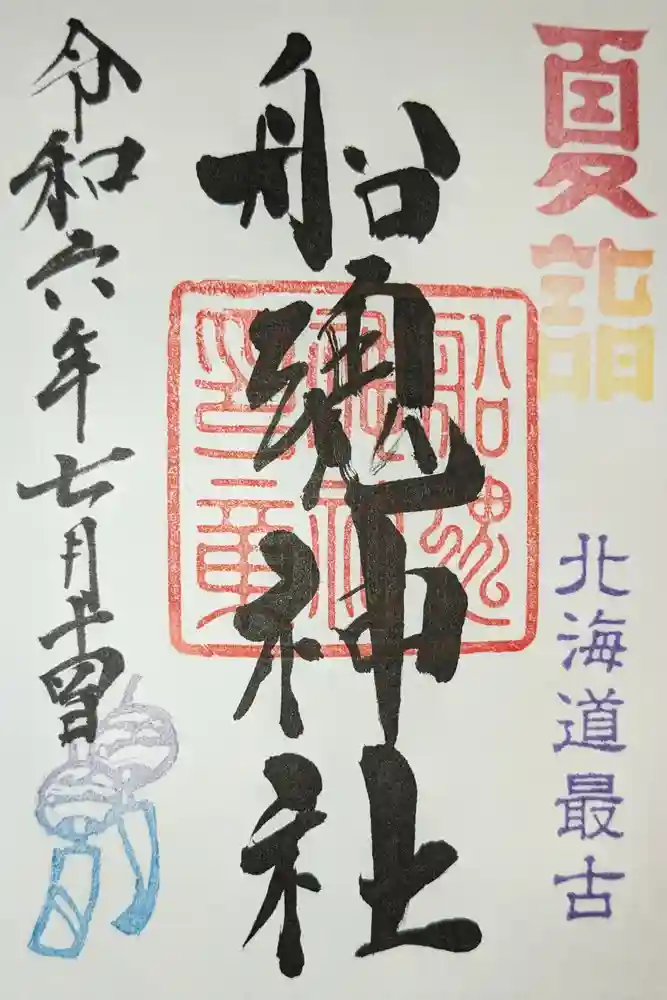 夏詣
北海道最古
船魂神社
船魂神社印章
令和六年七月十四日